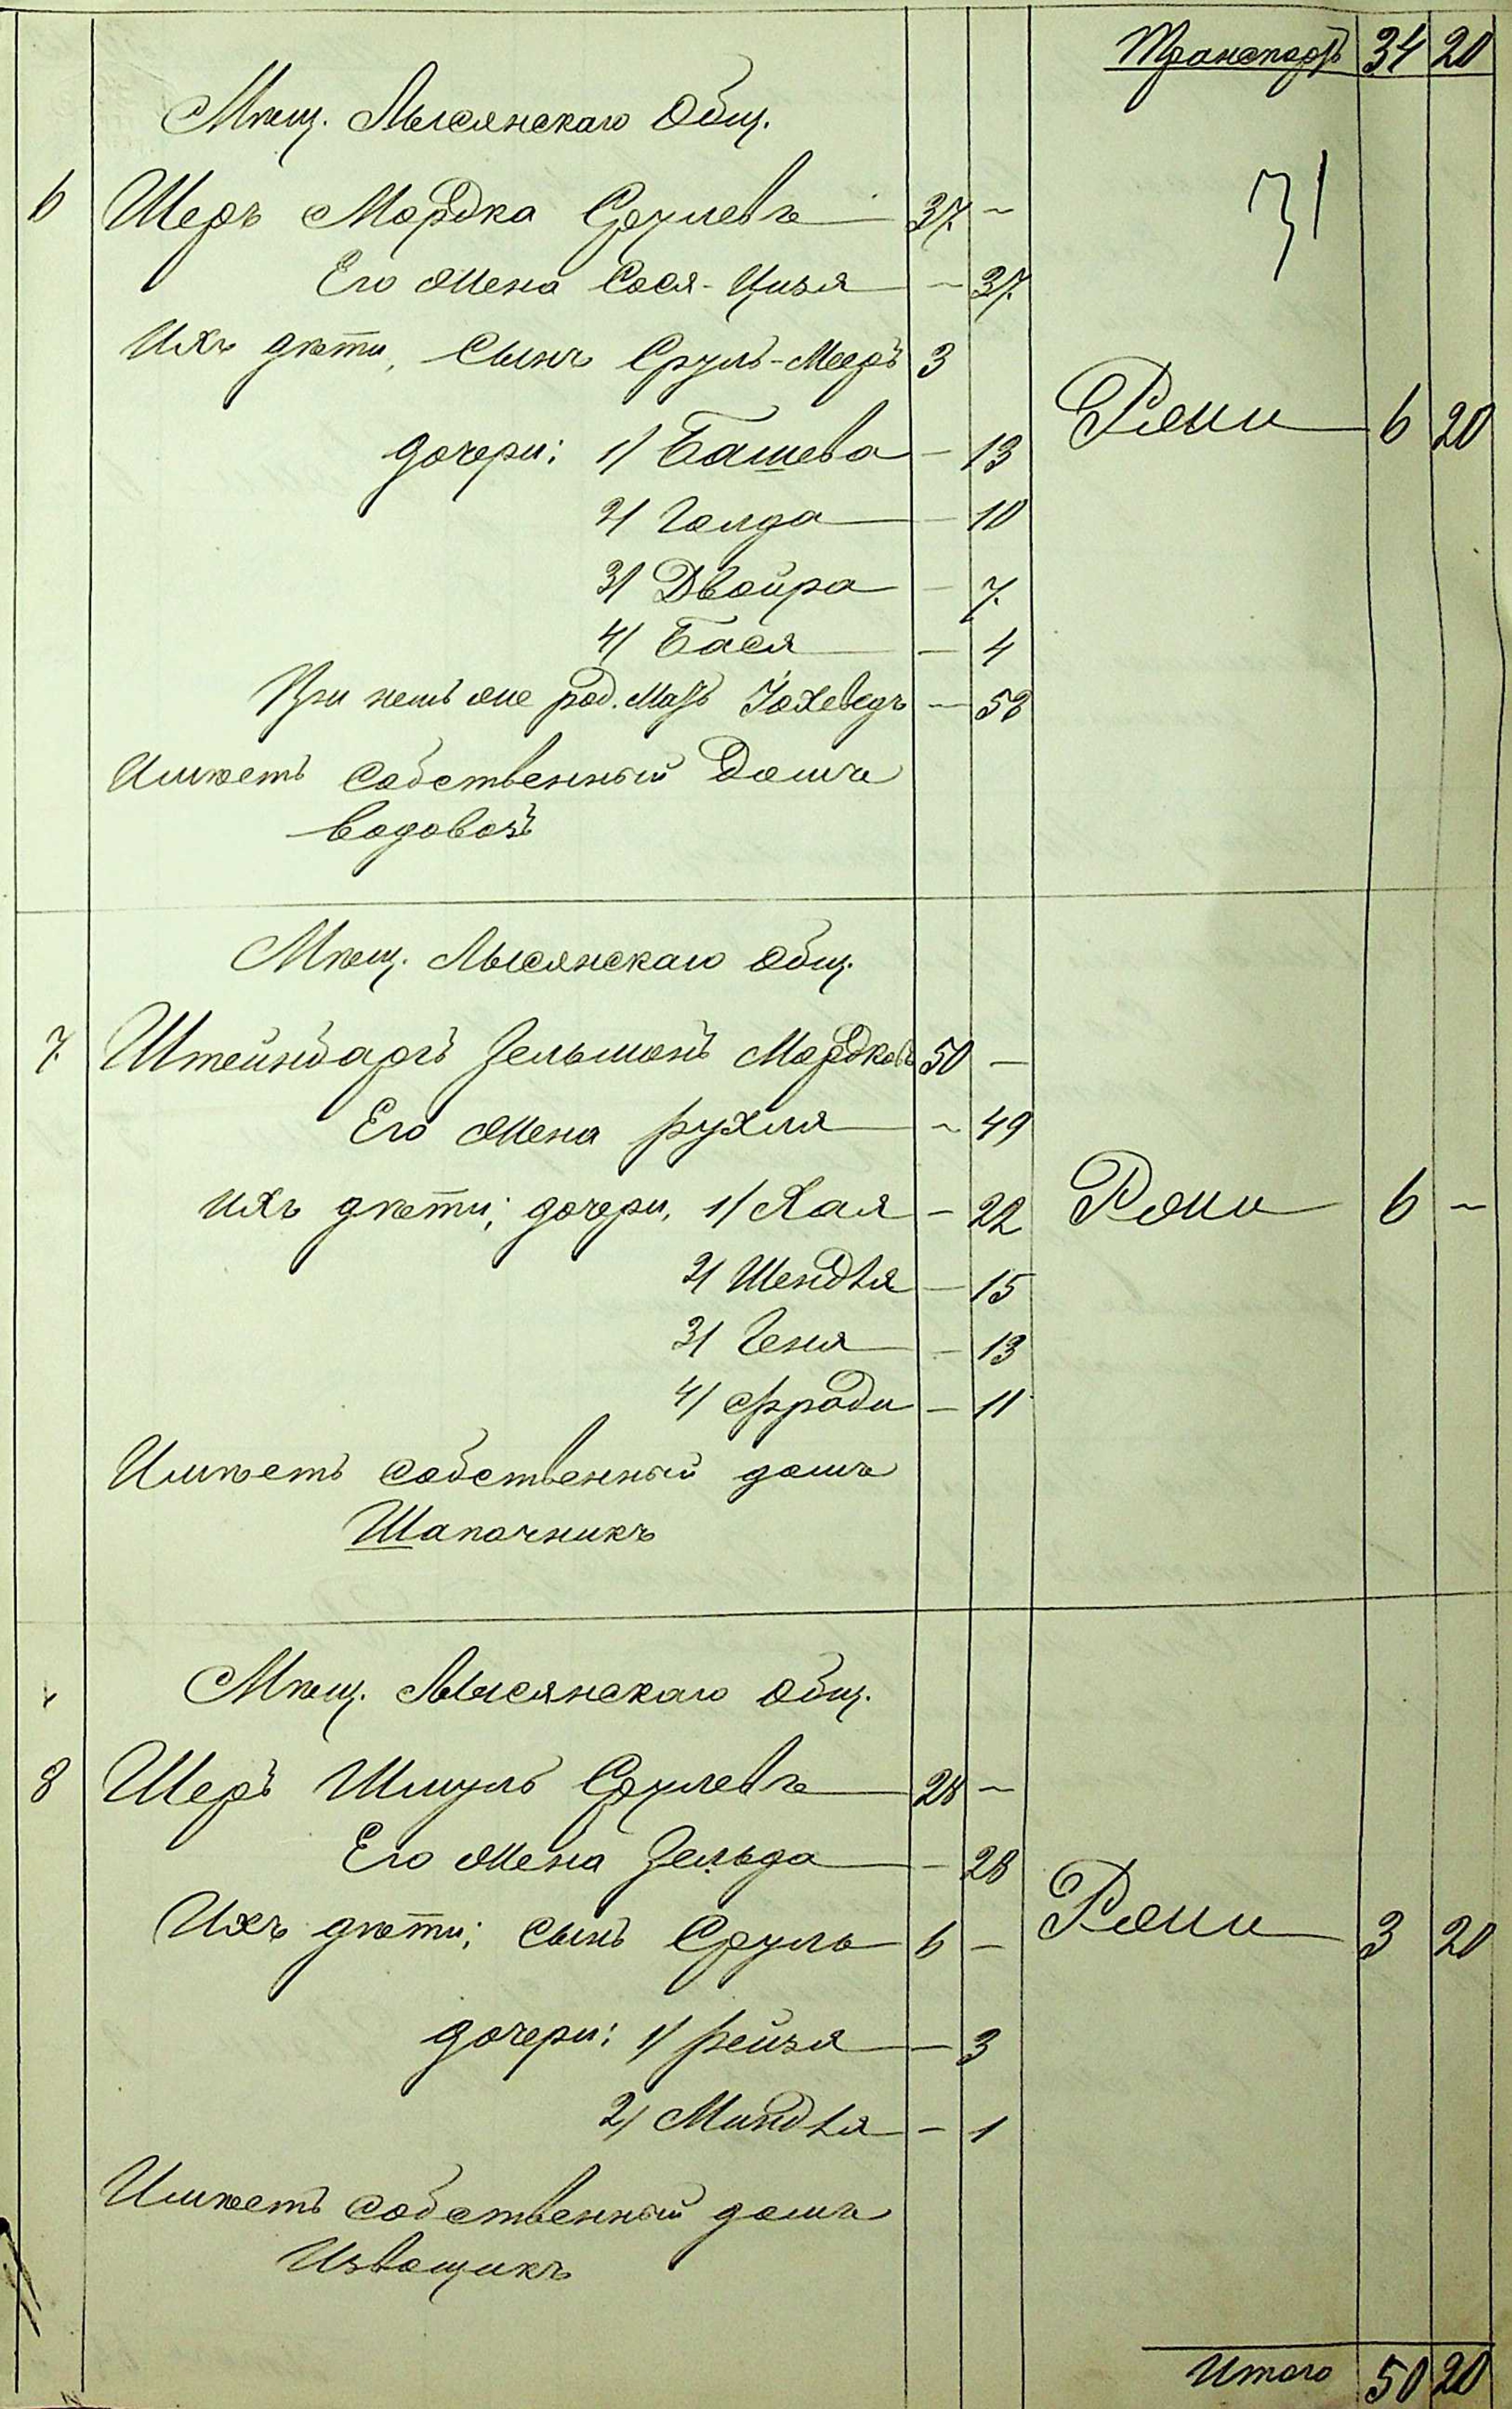 Транспортъ 34 20
Мѣщ. Лысянскаго Общ.
31
6 Шеръ Мордка Срулевъ 37 —
Его жена Сося-Цизя — 37
Ихъ дѣти, Сынъ Сруль-Мееръ 3
дочери: 1/ Башева — 13
6 20
2/ Голда — 10
3/ Двойра — 7
4/ Бася — 4
При немъ же род. мать Іохеведъ — 58
Имѣетъ собственный домъ
водовозъ
Мѣщ. Лысянскаго общ.
7 Штейнбаргъ Зельманъ Мордковъ 50 —
Его жена Рухля — 49
ихъ дѣти; дочери, 1/ Хая — 22 6 —
2/ Шендля — 15
3/ Геня — 13
4/ Фради — 11
Имѣетъ собственный домъ
Шапочникъ
Мѣщ. Лысянскаго общ.
8 Шеръ Шмуль Срулевъ 28 —
Его жена Зельда — 28
Ихъ дѣти; сынъ Сруль 6 — 3 20
дочери: 1/ Рейзя — 3
2/ Миндля — 1
Имѣетъ собственный домъ
Извощикъ
Итого 50 20